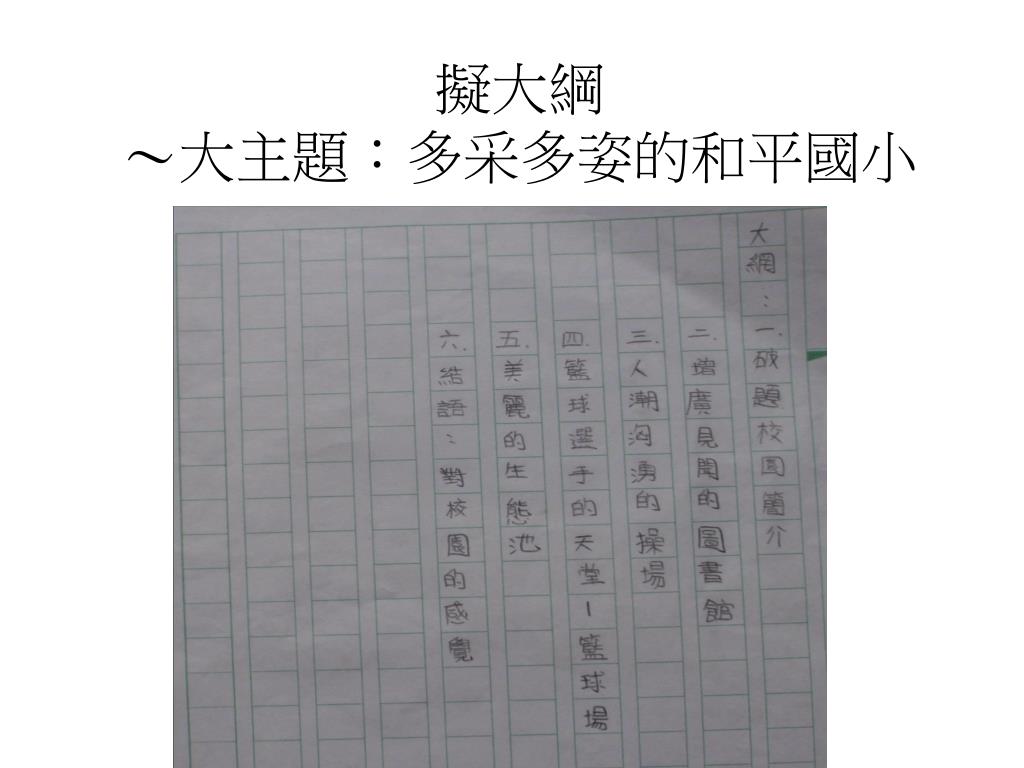 擬大綱
～大主題：多采多姿的和平國小
大網：一.破題校園簡介
二.增廣見聞的圖書館
三.人潮洶湧的操場
四.籃球選手的天堂－籃球場
五.美麗的生態池
六.結語：對校園的感覺